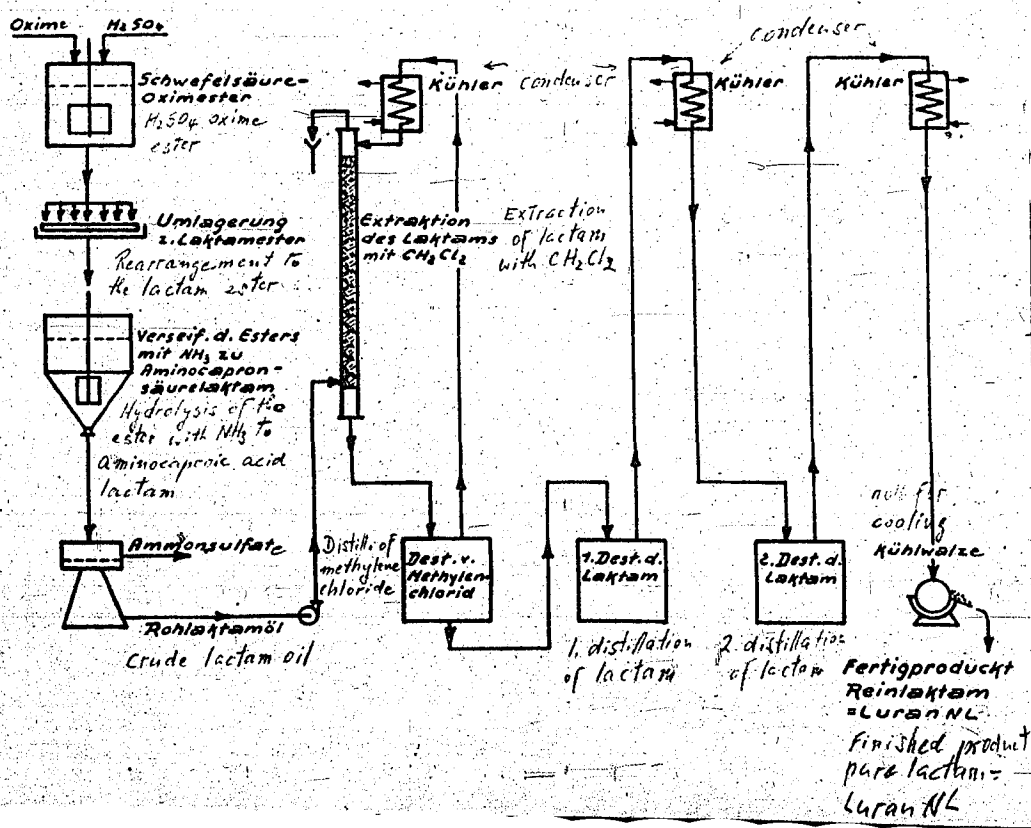 Oxime H₂SO₄
Schwefelsäure-
Oximester
H₂SO₄ oxime
ester
Umlagerung
z. Laktamester
Rearrangement to
the lactam ester
Verseif. d. Esters
mit NH₃ zu
Aminocapron-
säurelaktam
Hydrolysis of the
ester with NH₃ to
aminocaproic acid
lactam
Ammonsulfate
Rohlaktamöl
Crude lactam oil
Kühler
condenser
Extraktion
des Laktams
mit CH₂Cl₂
Extraction
of lactam
with CH₂Cl₂
Distill. of
methylene
chloride
Dest. v.
Methylen-
chlorid
condenser
Kühler
1. Dest. d.
Laktam
1. distillation
of lactam
Kühler
2. Dest. d.
Laktam
2. distillation
of lactam
for
cooling
Kühlwalze
Fertigproduckt
Reinlaktam
=Luran NL
Finished product
pure lactam=
Luran NL